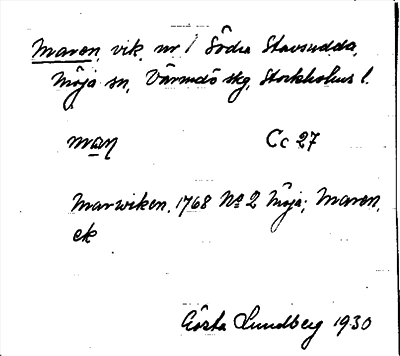 Maren, vik, nr 1 Södra Stavsudda,
Möja sn, Värmdö skg, Stockholms l.
maṟn̥ Cc 27
Marwiken, 1768 No 2 Möja; Maren,
ek
Gösta Lundberg 1930